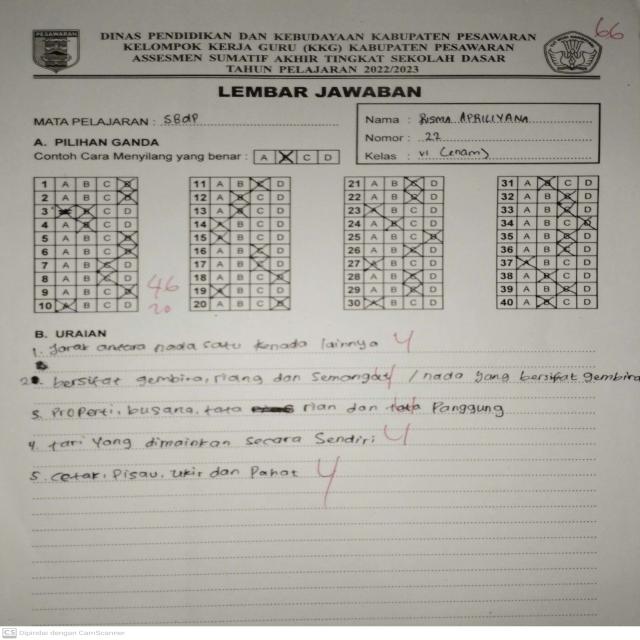 PESAWARAN
DINAS PENDIDIKAN DAN KEBUDAYAAN KABUPATEN PESAWARAN
KELOMPOK KERJA GURU (KKG) KABUPATEN PESAWARAN
ASSESMEN SUMATIF AKHIR TINGKAT SEKOLAH DASAR
TAHUN PELAJARAN 2022/2023
66
LEMBAR JAWABAN
MATA PELAJARAN : SBdP
Nama : RISMA APRILIYANA
Nomor : 22
Kelas : VI (enam)
A. PILIHAN GANDA
Contoh Cara Menyilang yang benar : A B C D
1 A B C D
2 A B C D
3 A B C D
4 A B C D
5 A B C D
6 A B C D
7 A B C D
8 A B C D
9 A B C D
10 A B C D
46
20
11 A B C D
12 A B C D
13 A B C D
14 A B C D
15 A B C D
16 A B C D
17 A B C D
18 A B C D
19 A B C D
20 A B C D
21 A B C D
22 A B C D
23 A B C D
24 A B C D
25 A B C D
26 A B C D
27 A B C D
28 A B C D
29 A B C D
30 A B C D
31 A B C D
32 A B C D
33 A B C D
34 A B C D
35 A B C D
36 A B C D
37 A B C D
38 A B C D
39 A B C D
40 A B C D
B. URAIAN
1. Jarak antara nada satu kenada lainnya 4
2. bersifat gembira, riang dan Semangat / nada yang bersifat gembira
3. Properti, busana, tata rian dan tata Panggung
4. tari yang dimainkan secara Sendiri 4
5. Cetak, Pisau, ukir dan Pahat 4
CS Dipindai dengan CamScanner